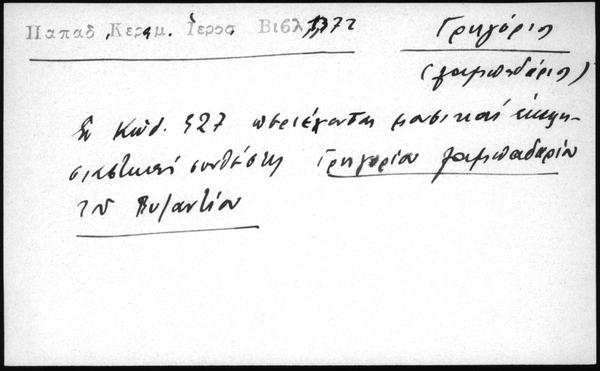 Παπαδ. Κεραμ. Ἱεροσ. Βιβλ. 372
Γρηγόριος
(λαμπαδάριος)
Ἐν Κώδ. 427 περιέχονται μουσικαί ἐκκλη-
σιαστικαί συνθέσεις Γρηγορίου λαμπαδαρίου
τοῦ Βυζαντίου